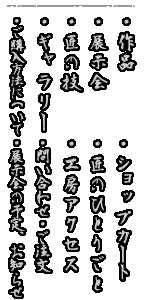 ・作品
・展示会
・匠の技
・ギャラリー
・ご購入方法について
・ショップカート
・匠のひとりごと
・工房アクセス
・問い合わせ・ご注文
・展示会の予定 お知らせ